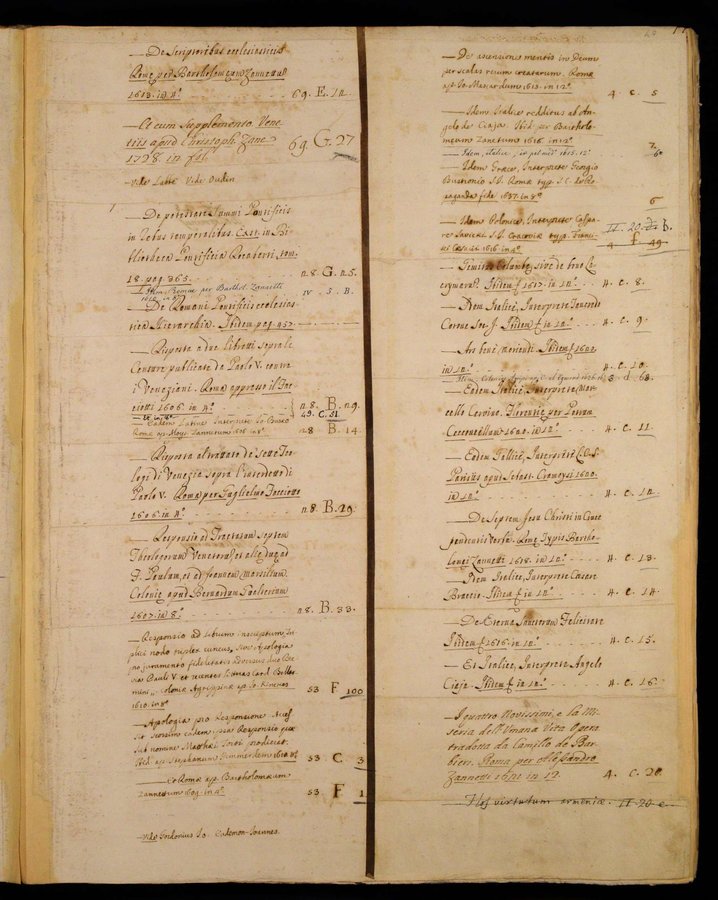 — De Scriptoribus ecclesiasticis
Romę per Bartholomęum Zannettum
1613. in 4.° . . . . 69. E. 12.
— Et cum Supplemento. Vene
tiis apud Christoph. Zane
1728 in fol. 69. G. 27
— Vide Labbe Vide Oudin
— De potestate Summi Pontificis
in rebus temporalibus. Extat in Bi-
bliotheca Pontificia Rocaberti. tom.
18. pag. 365. . . . . 28. G. 25.
— Item Romae per Barthol. Zannetti
1610. in 8.° IV. 5. B.
— De Romani Pontificis ecclesias
tica Hierarchia. Ibidem pag. 457.
— Risposta a due libretti sopra le
Censure publicate da Paolo V. contra
i Veneziani. Roma appresso il Fac
ciotti 1606. in 4.° . . . 28. B. 29.
49. C. 51
— Eadem Latine Interprete
Romę 1606 in 8.° 28 B. 14.
— Risposta al trattato de' sette Teo
logi di Venezia sopra l'interdetto di
Paolo V. Roma per Guglielmo Facciotto
1606. in 4.° . . . 28. B. 29.
— Responsio ad Tractatum septem
Theologorum Venetorum, et alię duę ad
F. Paulum, et ad Joannem Marsilium.
Colonię apud Bernardum Gualterium
1607. in 8.° . . . 28. B. 33.
— Responsio ad Librum inscriptum, Tri
plici nodo triplex cuneus, sive Apologia
pro juramento fidelitatis adversus duo Bre
via Pauli V. et recentes litteras Card. Bellar
mini, Colonię Agrippinę ap. Jo. Kinckes
1610. in 8.° 53 F 100
— Apologia pro Responsione
sub nomine Matthęi Torti prodiit
1610. 8.° 53. C. 3
— et Romae ap. Bartholomęum
Zannettum 1609. in 4.° 53. F 1.
— Vide Eudemon-Joannes.
— De ascensione mentis in Deum
per scalas rerum creatarum. Romæ
ap. Jo. Mascardum 1613. in 12.° 4. C. 5
— Idem Italice redditus ab An-
gelo de Ciaja. Ibid. per Bartholo-
męum Zanettum 1616. in 12.° 7.
— Idem, italice, 1615. 12.°
— Idem Gręce, Interprete Georgio
Bustronio S.J. Romæ typ. S.C. de Pro
paganda fide 1637. in 8.° 6
— Idem Polonice, Interprete Caspa-
re Savicki S.J. Cracovię typ. Franci-
sci Cęsarii. 1616. in 4.° II. 20. B.
4 F. 49
— Gemitus Columbę, sive de bono La-
crymarū. Ibidem f. 1617. in 12.° . . 4. C. 8.
— Idem Italice, Interprete
Soc. J. Ibidem f. in 12.° . . . 4. C. 9.
— Ars bene moriendi. Ibidem f. 1620.
in 12.° . . . 4. C. 10.
3. d. 68.
— Eadem Italice, Interprete Mar-
cello Cervino. Florentię per Petrum
Cecconcellum 1620. in 12.° . . 4. C. 11.
— Eadem Gallice, Interprete
Parisiis apud Sebast. Cramoysi 1620.
in 12.° . . . 4. C. 12.
— De Septem Jesu Christi in Cruce
pendentis Verbis. Romę Typis Bartho-
lomęi Zannetti 1618. in 12.° . . 4. C. 13.
— Item Italice, Interprete Cesare
Braccio. Ibidem f. in 12.° . . 4. C. 14.
— De Ęterna Sanctorum Felicitate
Ibidem f. 1616. in 12.° . . . 4. C. 15.
— Et Italice, Interprete Angelo
Ciaja. Ibidem f. in 12.° . . . 4. C. 16.
— I quattro Novissimi, e la Mi
seria dell'Umana Vita Opera
tradotta da Camillo de Bar-
bieri. Roma per Alessandro
Zannetti 1621 in 12 4. C. 20.
— Flos virtutum armenicę. II 20 e